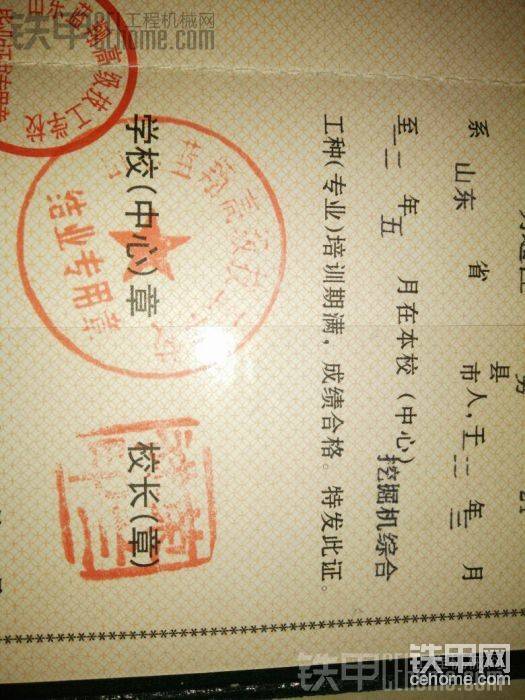 系 山东 省 县
市人,于 一二 年 三 月
至 一二 年 五 月在本校(中心) 挖掘机综合
工种(专业)培训期满,成绩合格。特发此证。
学校(中心)章 校长(章)
结业专用章
高级技工学校
铁甲 工程机械网
cehome.com
铁甲网
cehome.com